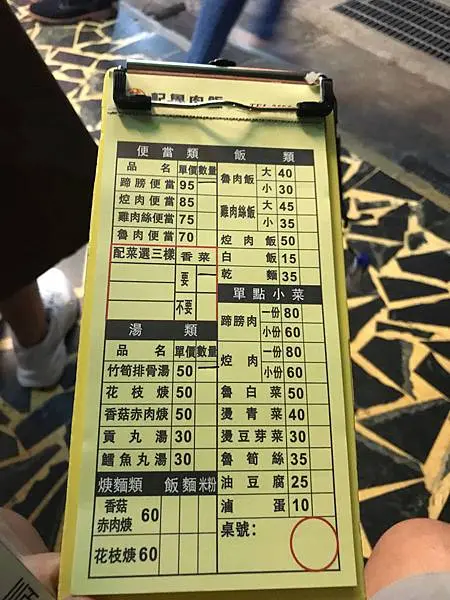 記魯肉飯
便當類
品名 單價 數量
蹄膀便當 95
焢肉便當 85
雞肉絲便當 75
魯肉便當 70
配菜選三樣 香菜
要
不要
湯類
品名 單價 數量
竹筍排骨湯 50
花枝焿 50
香菇赤肉焿 50
貢丸湯 30
鱈魚丸湯 30
焿麵類 飯 麵 米粉
香菇赤肉焿 60
花枝焿 60
飯類
魯肉飯 大 40
小 30
雞肉絲飯 大 45
小 35
焢肉飯 50
白飯 15
乾麵 35
單點小菜
蹄膀肉 一份 80
小份 60
焢肉 一份 80
小份 60
魯白菜 50
燙青菜 40
燙豆芽菜 30
魯筍絲 35
油豆腐 25
滷蛋 10
桌號: